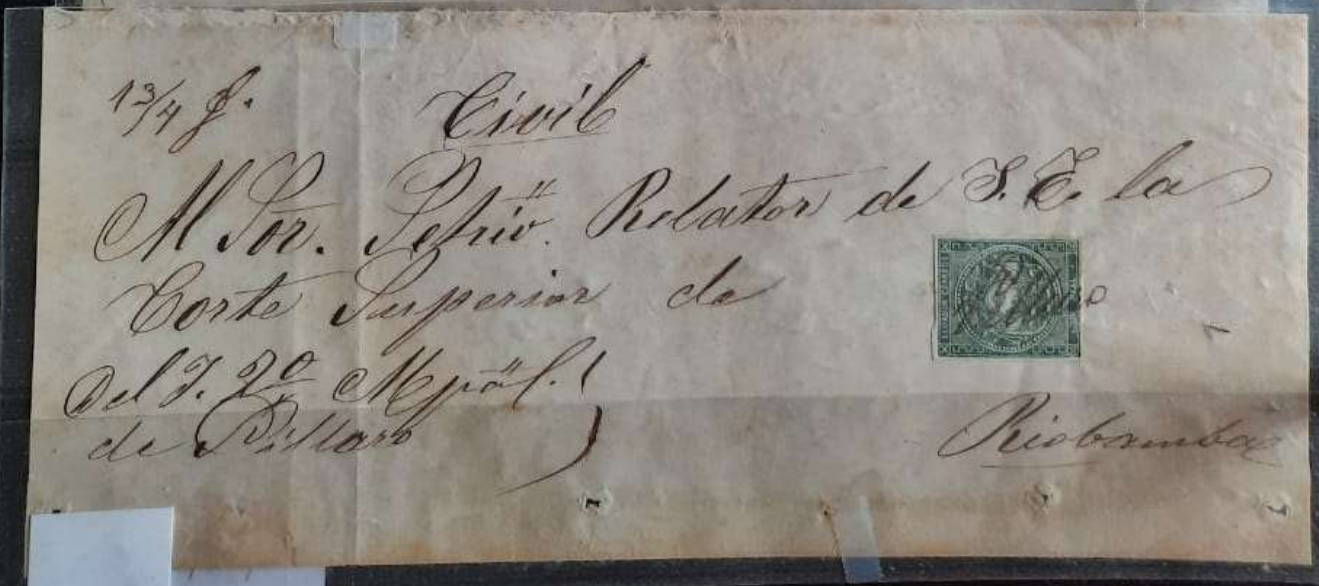 1 3/4 f.
Civil
Al Sor. Setrio. Relator de S. E. la
Corte Superior de
Del J. 2º Mpal.
de Píllaro
Píllaro
Riobamba